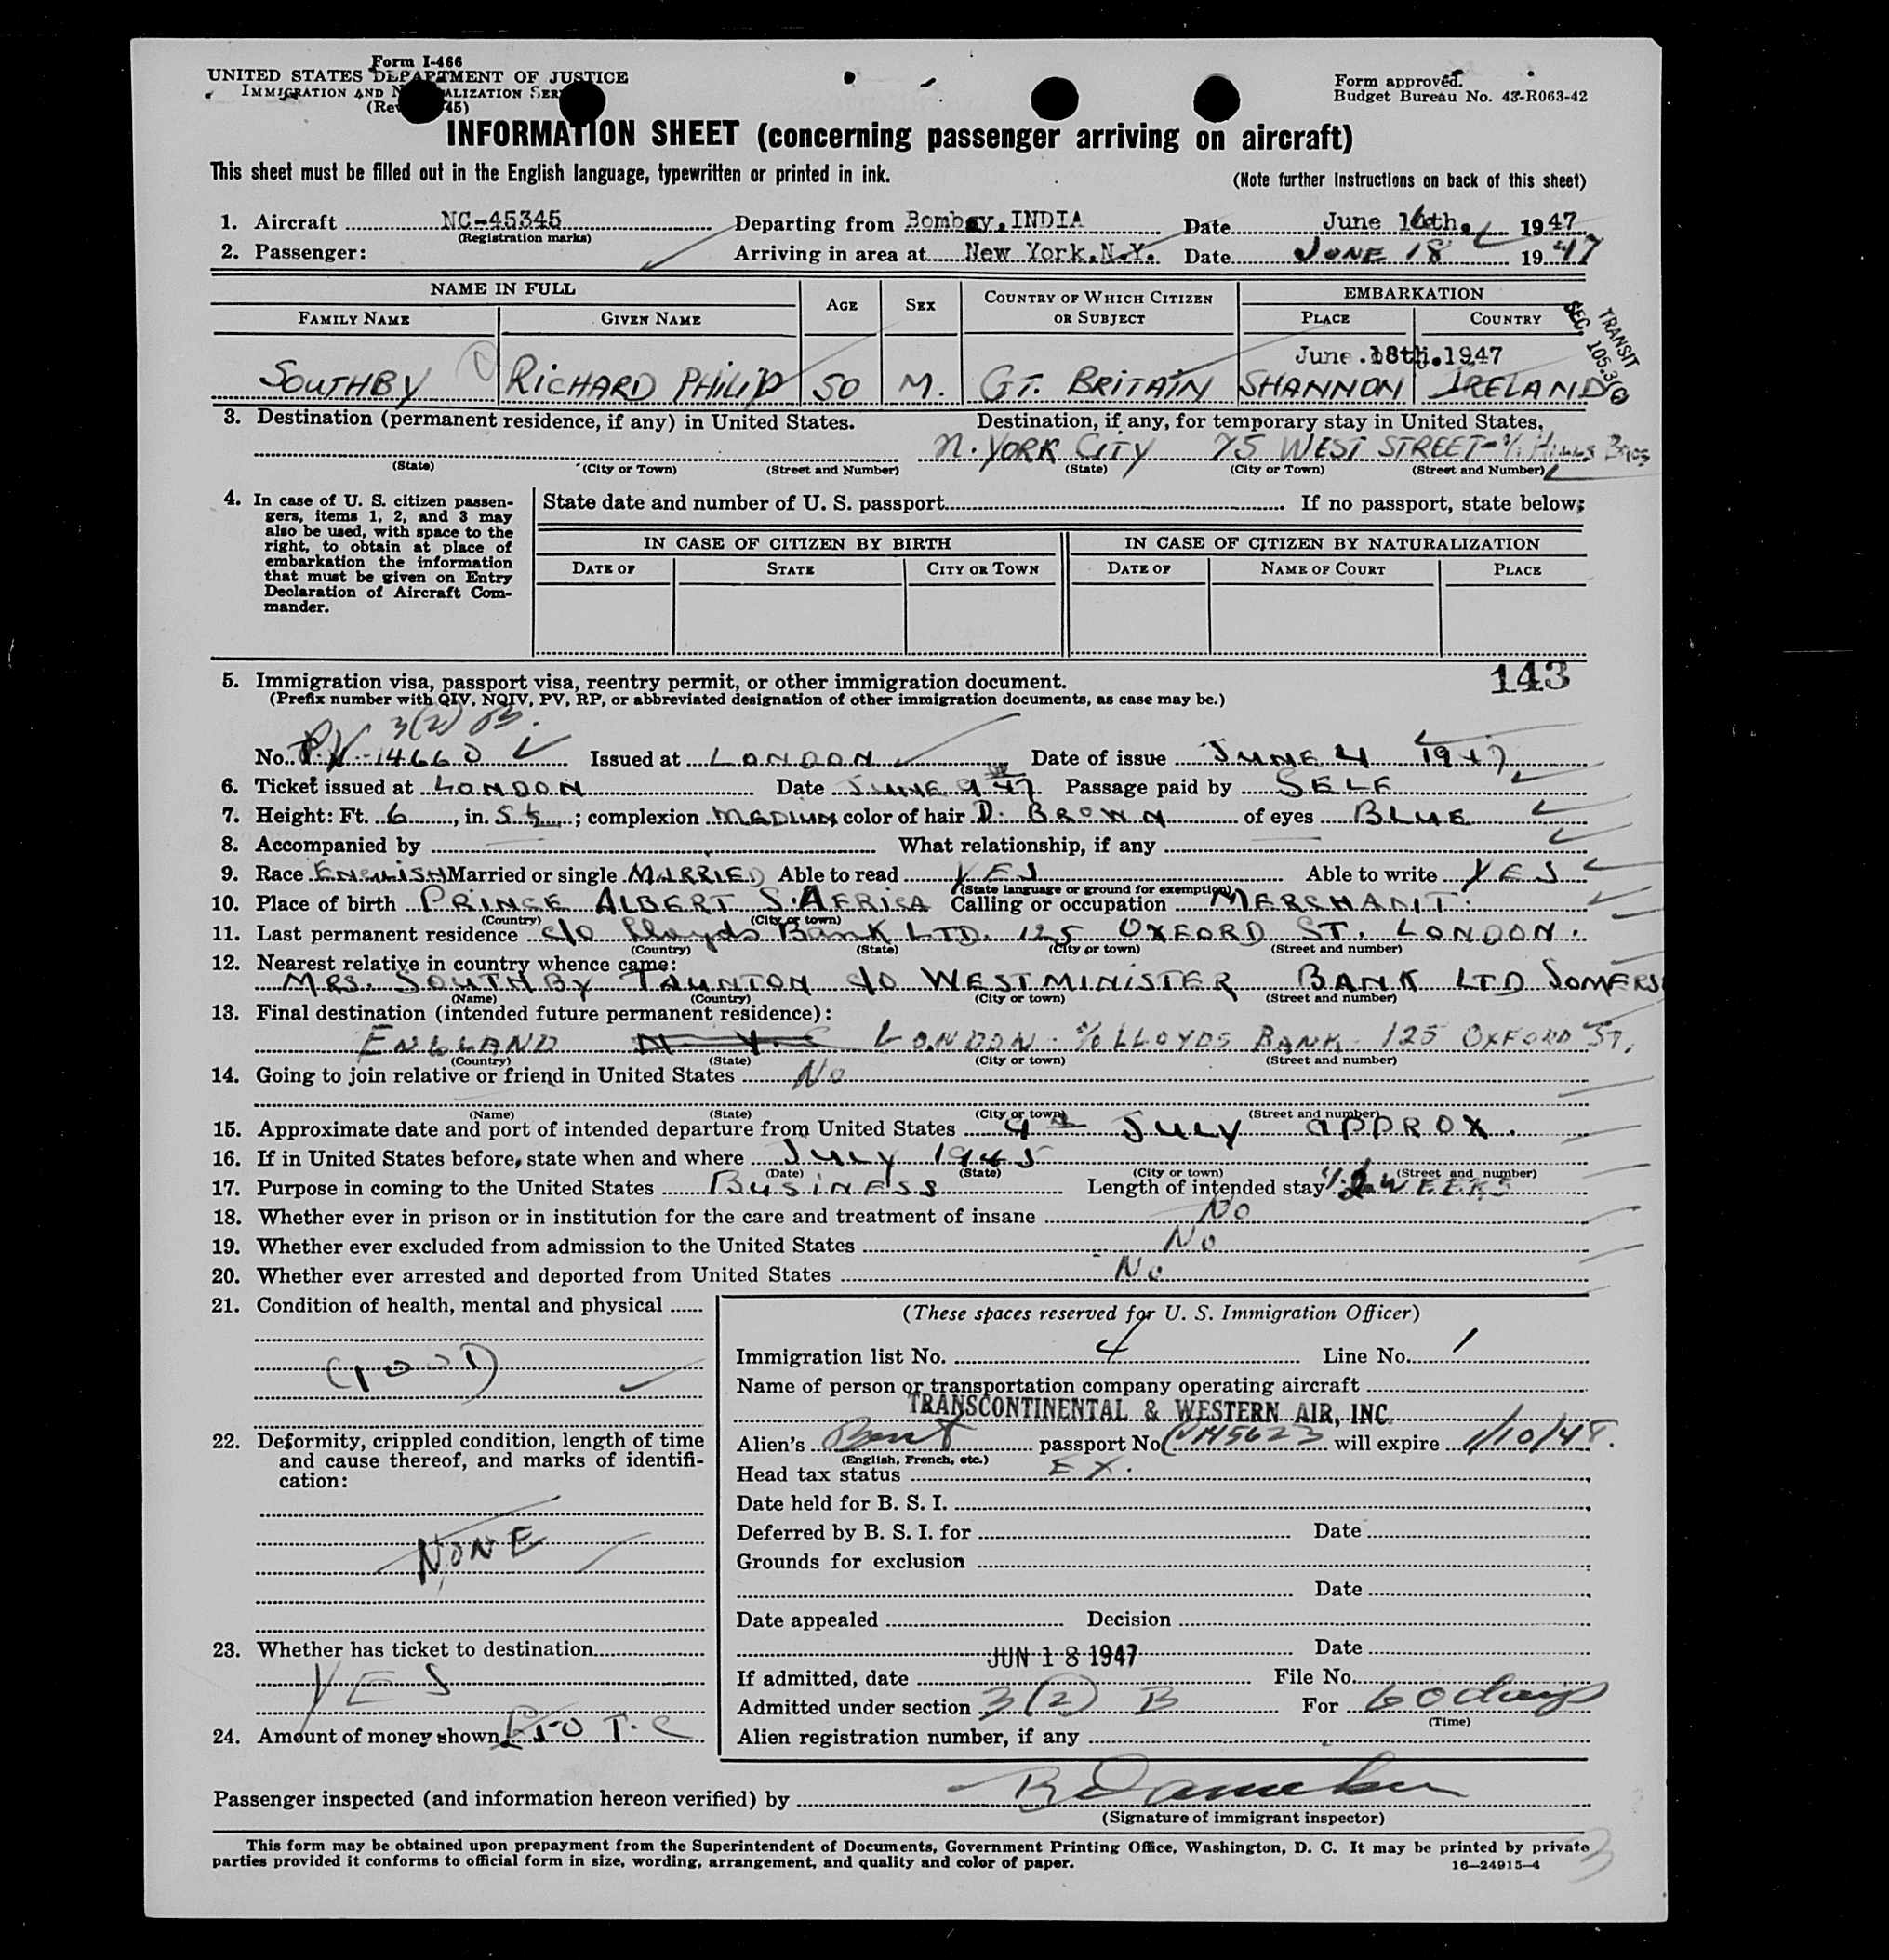 Form I-466
UNITED STATES DEPARTMENT OF JUSTICE
IMMIGRATION AND NATURALIZATION SERVICE
(Rev. 45)
Form approved.
Budget Bureau No. 43-R063-42
INFORMATION SHEET (concerning passenger arriving on aircraft)
This sheet must be filled out in the English language, typewritten or printed in ink.
(Note further instructions on back of this sheet)
1. Aircraft NC-45345 Departing from Bombay, INDIA Date June 16th. 1947
(Registration marks)
2. Passenger: Arriving in area at New York, N.Y. Date JUNE 18 1947
NAME IN FULL AGE SEX COUNTRY OF WHICH CITIZEN OR SUBJECT EMBARKATION
FAMILY NAME GIVEN NAME PLACE COUNTRY
TRANSIT
SEC. 105.3
June 18th. 1947
SOUTHBY RICHARD PHILIP 50 M. GT. BRITAIN SHANNON IRELAND
3. Destination (permanent residence, if any) in United States. Destination, if any, for temporary stay in United States.
N. YORK CITY 75 WEST STREET - c/o HILLS BROS
(State) (City or Town) (Street and Number) (State) (City or Town) (Street and Number)
4. In case of U. S. citizen passengers, items 1, 2, and 3 may also be used, with space to the right, to obtain at place of embarkation the information that must be given on Entry Declaration of Aircraft Commander.
State date and number of U. S. passport If no passport, state below:
IN CASE OF CITIZEN BY BIRTH IN CASE OF CITIZEN BY NATURALIZATION
DATE OF STATE CITY OR TOWN DATE OF NAME OF COURT PLACE
143
5. Immigration visa, passport visa, reentry permit, or other immigration document.
(Prefix number with QIV, NQIV, PV, RP, or abbreviated designation of other immigration documents, as case may be.)
3(2) B.
No. P.V. 14660 Issued at LONDON Date of issue JUNE 4 1947
6. Ticket issued at LONDON Date JUNE 9 47 Passage paid by SELF
7. Height: Ft. 6, in. 5½; complexion MEDIUM color of hair D. BROWN of eyes BLUE
8. Accompanied by What relationship, if any
9. Race ENGLISH Married or single MARRIED Able to read YES Able to write YES
(State language or ground for exemption)
10. Place of birth PRINCE ALBERT S. AFRICA Calling or occupation MERCHANT.
(Country) (City or town)
11. Last permanent residence c/o Lloyds Bank LTD. 125 OXFORD ST. LONDON.
(Country) (State) (City or town) (Street and number)
12. Nearest relative in country whence came:
MRS. SOUTHBY TAUNTON c/o WESTMINISTER BANK LTD SOMERS
(Name) (Country) (City or town) (Street and number)
13. Final destination (intended future permanent residence):
ENGLAND LONDON. c/o LLOYDS BANK 125 OXFORD ST.
(Country) (State) (City or town) (Street and number)
14. Going to join relative or friend in United States No
(Name) (State) (City or town) (Street and number)
15. Approximate date and port of intended departure from United States 9th JULY APPROX.
16. If in United States before, state when and where JULY 1945
(Date) (State) (City or town) (Street and number)
17. Purpose in coming to the United States BUSINESS Length of intended stay WEEKS
18. Whether ever in prison or in institution for the care and treatment of insane No
19. Whether ever excluded from admission to the United States No
20. Whether ever arrested and deported from United States No
21. Condition of health, mental and physical
GOOD
22. Deformity, crippled condition, length of time and cause thereof, and marks of identification:
NONE
23. Whether has ticket to destination
YES
24. Amount of money shown £50 T.C
(These spaces reserved for U. S. Immigration Officer)
Immigration list No. 4 Line No. 1
Name of person or transportation company operating aircraft
TRANSCONTINENTAL & WESTERN AIR, INC.
Alien's Brit passport No. will expire 1/10/48.
(English, French, etc.)
Head tax status EX.
Date held for B. S. I.
Deferred by B. S. I. for Date
Grounds for exclusion
Date
Date appealed Decision
Date
JUN 18 1947
If admitted, date File No.
Admitted under section 3(2) B For 60 days
(Time)
Alien registration number, if any
Passenger inspected (and information hereon verified) by
(Signature of immigrant inspector)
This form may be obtained upon prepayment from the Superintendent of Documents, Government Printing Office, Washington, D. C. It may be printed by private
parties provided it conforms to official form in size, wording, arrangement, and quality and color of paper.
16—24915-4